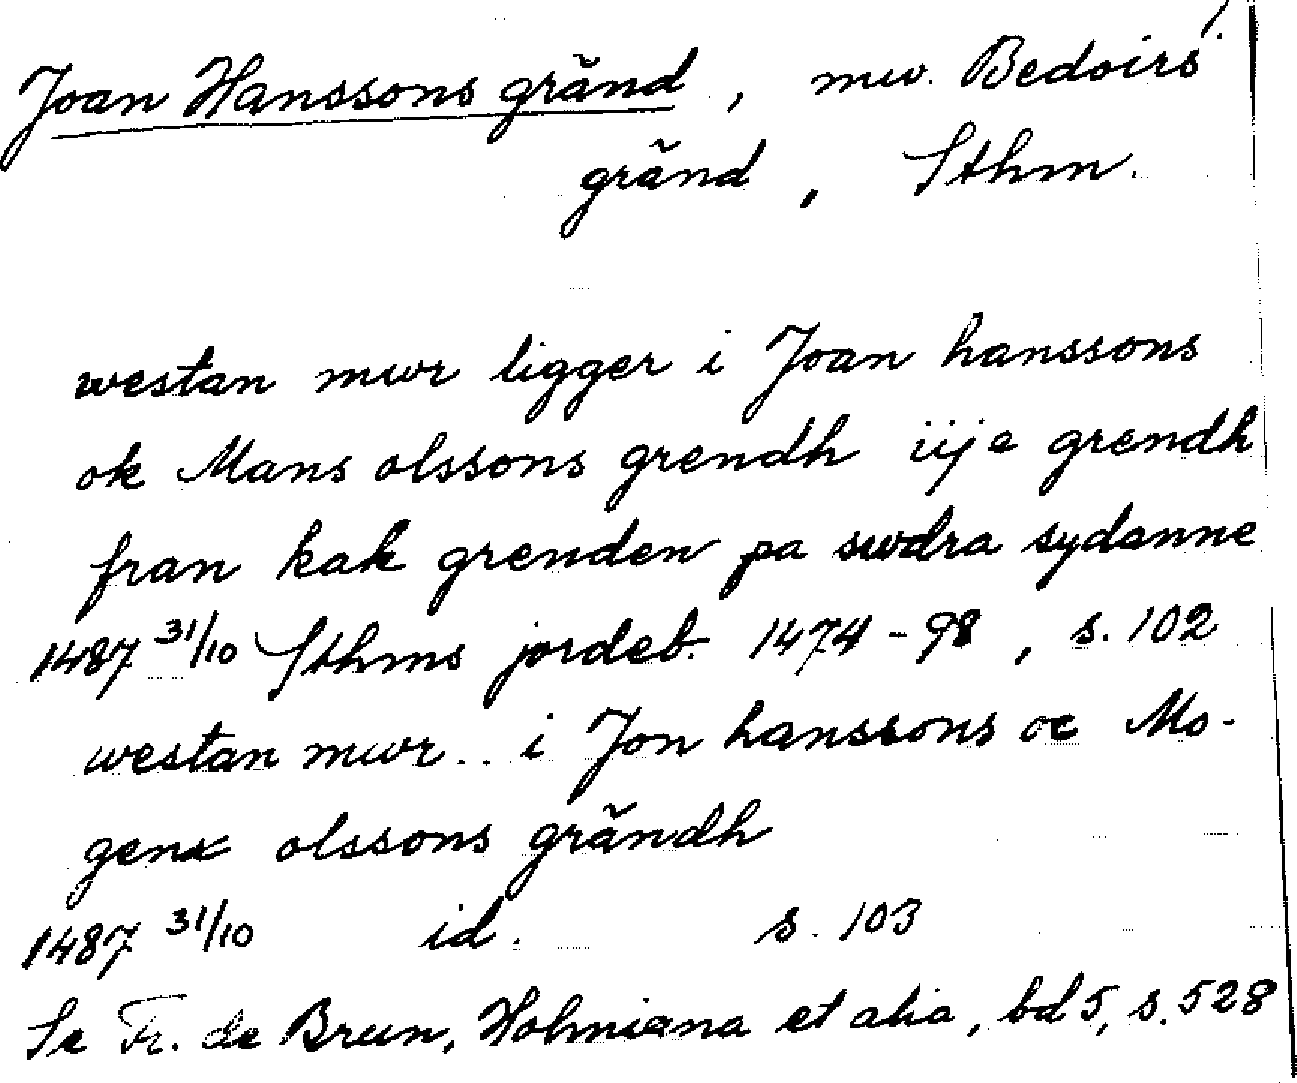 Joan Hanssons gränd, nuv. Bedoirs
gränd, Sthm.
westan mwr ligger i Joan hanssons
ok Mans olssons grendh iije grendh
fran kak grenden pa swdra sydanne
1487 31/10 Sthms jordeb. 1474-98, s. 102
westan mwr .. i Jon hanssons oc Mo-
gens olssons grändh
1487 31/10 id. s. 103
Se Fr. de Brun, Holmiana et alia, bd 5, s. 528